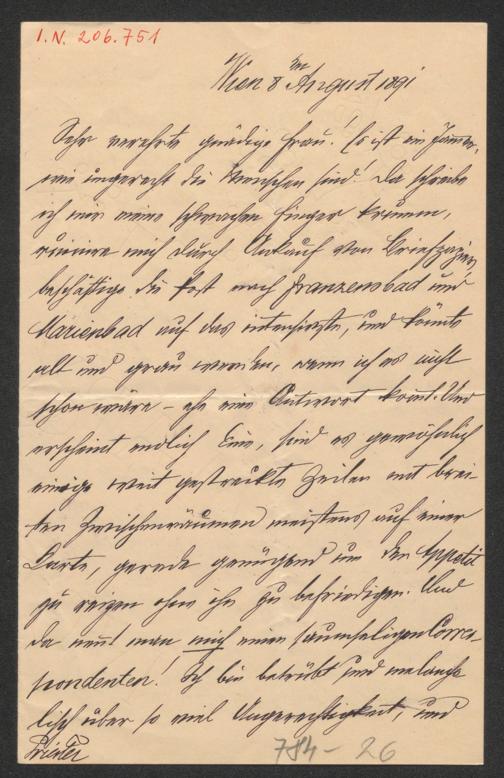 I.N. 206.751
Wien 8ten August 1891
Sehr verehrte gnädige Frau! Es ist ein Jammer,
wie ungerecht die Menschen sind! Da schreibe
ich mir meine schwachen Finger krumm,
ruinire mich durch Ankauf von Briefpapier,
beschäftige die Post nach Franzensbad und
Marienbad auf das intensivste, und könnte
alt und grau werden, wenn ich es nicht
schon wäre – ehe eine Antwort kommt. Und
erscheint endlich Eine, sind es gewöhnlich
einige weit gestreckte Zeilen mit brei-
ten Zwischenräumen meistens auf einer
Karte, gerade genügend um den Appetit
zu reizen ohne ihn zu befriedigen. Und
da nennt man mich einen saumseligen Corres-
pondenten! Ich bin betrübt und melancho-
lisch über so viel Ungerechtigkeit, und
784 – 26